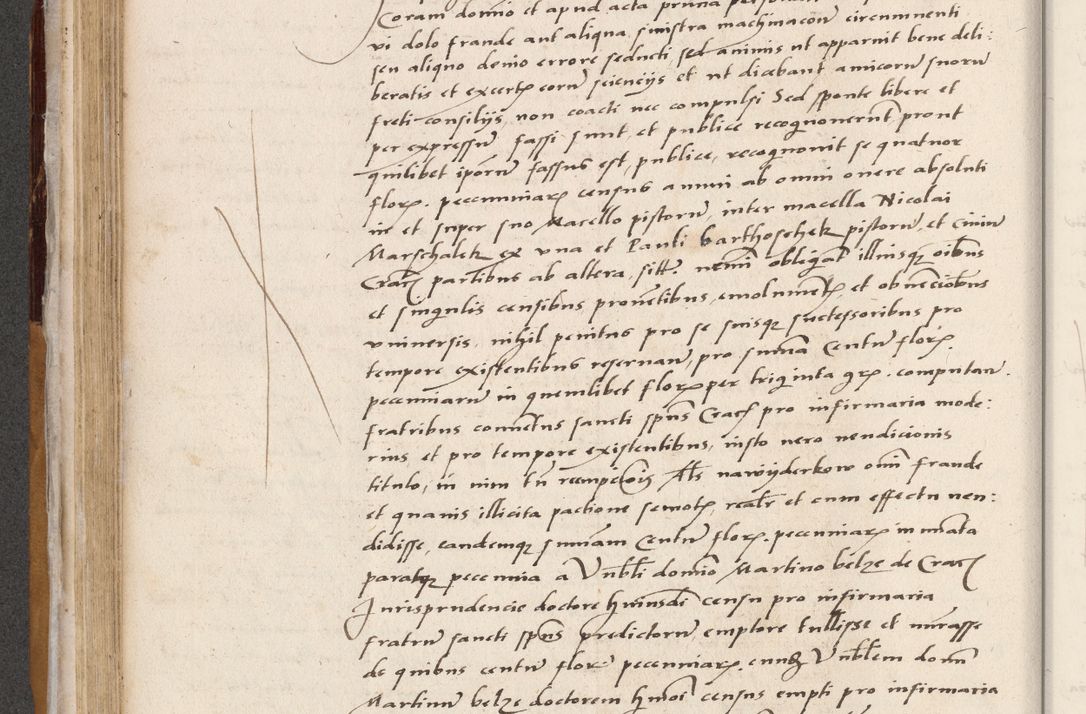 Coram domio et apud acta
vi dolo fraude aut aliqua sinistra machinacōn circumuenti
seu aliquo denio errore seducti, sed animis ut apparuit bene deli:
beratis et ex certꝭ eorū sciencijs et ut dicebant amicorū suorū
freti consilijs, non coacti nec compulsi Sed sponte libere et
per expressū, fassi sunt, et publice recognouerūt, prout
quilibet ip̄orū fassus est, publice, recognouit se quatuor
florꝭ. pecuniarꝭ census annui ab omni onere absoluti
in et super suo Macello pistorū, inter macella Nicolai
Marschalek ex vna et Pauli barthoschek pistorū, et Ciuiū
Crac̄ partibus ab altera, sitt. nemī obligat̄ illiusqꝫ oībus
et singulis censibus prouētibus, emolumētꝭ, et obuēciōibus
vniuersis, nihil penitus pro se suisqꝫ successoribus pro
tempore existentibus reseruan̄, pro suma Centū florꝭ.
pecuniarū in quemlibet florꝭ per triginta grꝭ. computan̄.
fratribus conuētus sancti spūs Crac̄ pro infirmaria mode:
rnis et pro tempore existentibus, iusto vero vendicionis
titulo, in vim tn̄ reempcōis Als nawÿderkow omī fraude
et quauis illicita pactione semotꝭ, realr̄ et cum effectu ven:
didisse, eandemqꝫ sumam Centū florꝭ. pecuniarꝭ in nūata
parataqꝫ pecunia a Vnbl̄i domīo Martino belze de Crac̄
Jurisprudencie doctore huiusdī censu pro infirmaria
fratrū sancti spūs predictorū, emptore tullisse et nūrasse
de quibus centū florꝭ pecuniarꝭ. eunqꝫ Vnbl̄em domī
Martinū belze doctorem hmōi census empti pro infirmaria